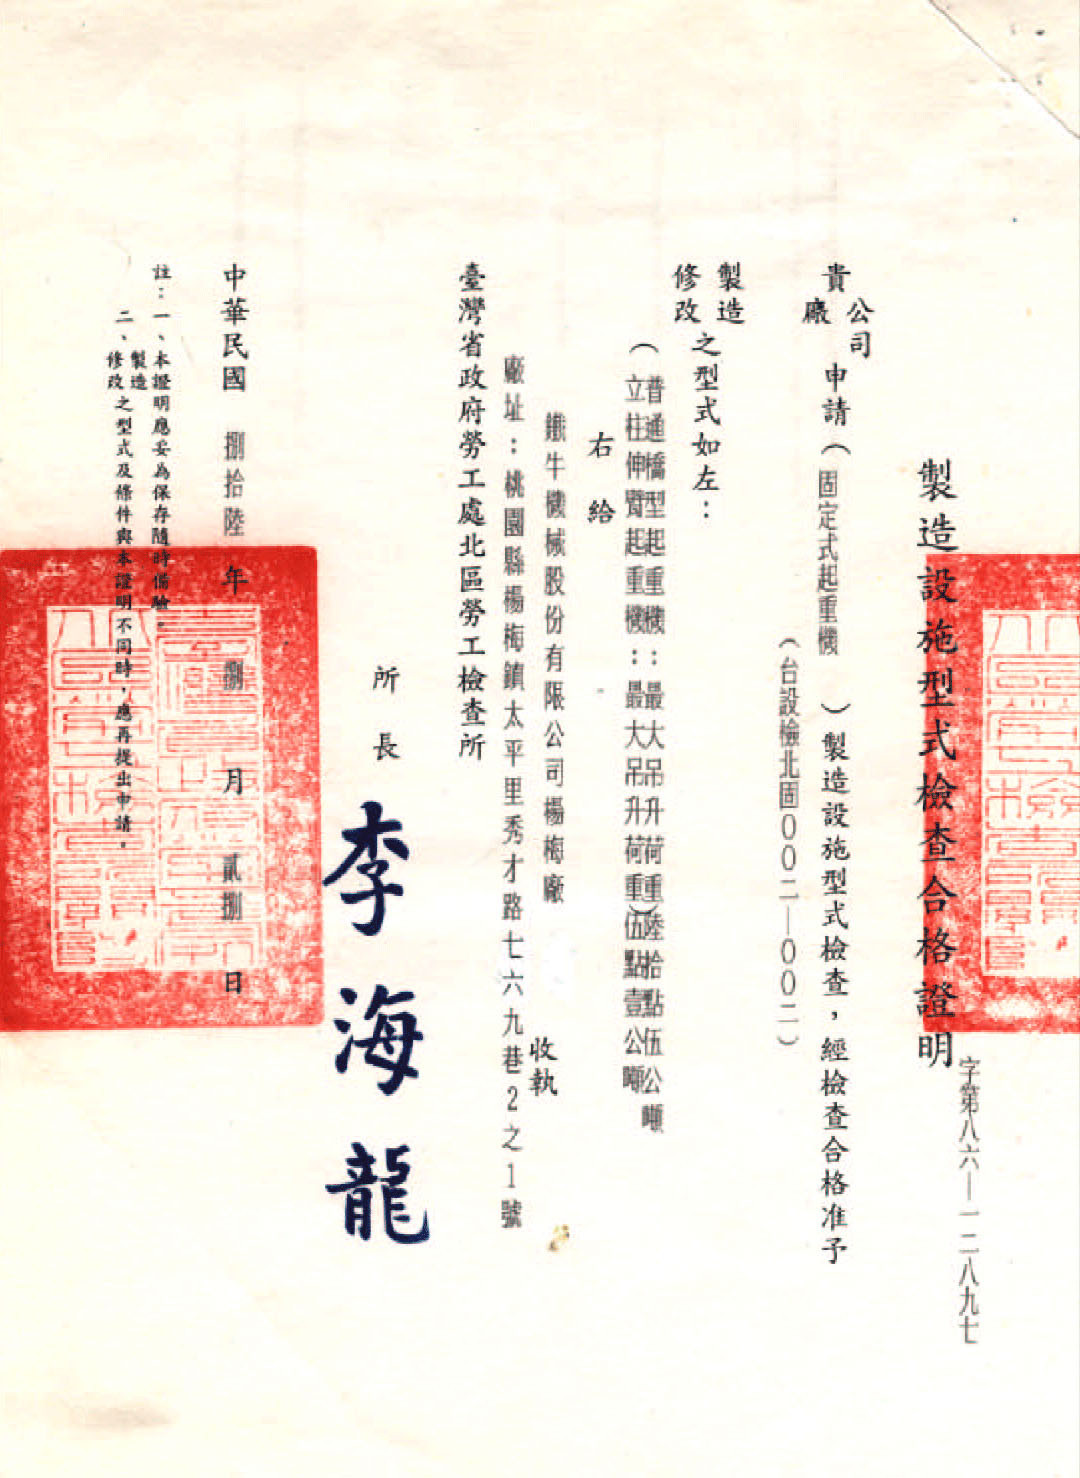 製造設施型式檢查合格證明
字第八六—一二八九七
貴公司
廠
申請（固定式起重機）製造設施型式檢查，經檢查合格准予
（台設檢北固００二—００二）
製造
修改
之型式如左：
（普通橋型起重機：最大吊升荷重陸拾點伍公噸
立柱伸臂起重機：最大吊升荷重伍點壹公噸）
右給
鐵牛機械股份有限公司楊梅廠
收執
廠址：桃園縣楊梅鎮太平里秀才路七六九巷2之1號
臺灣省政府勞工處北區勞工檢查所
所長 李海龍
中華民國捌拾陸年捌月貳捌日
註：一、本證明應妥為保存隨時備驗。
二、製造
修改
之型式及條件與本證明不同時，應再提出申請。